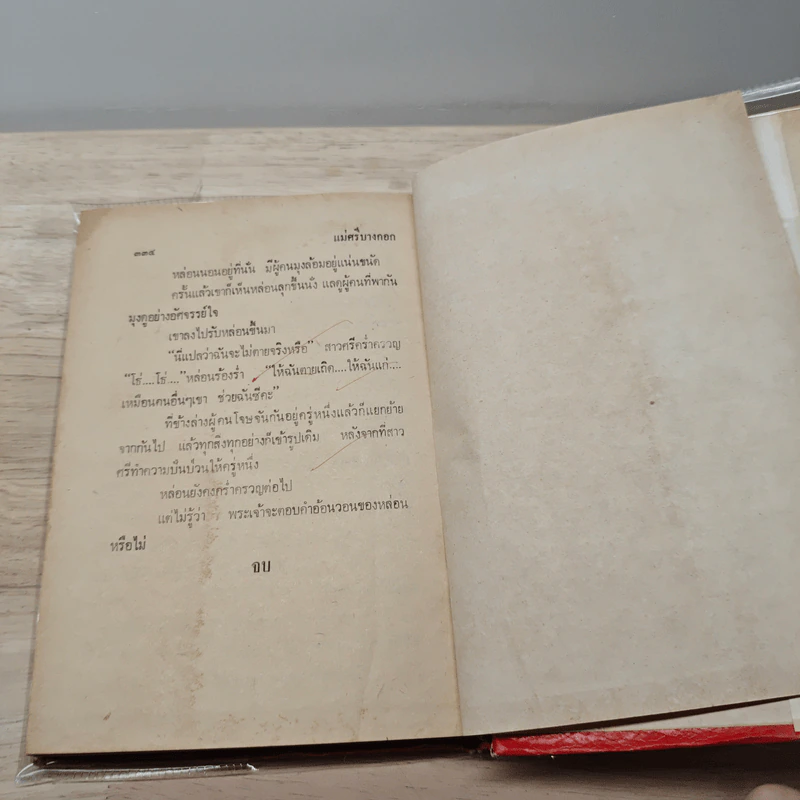 ๓๓๔
แม่ศรีบางกอก
หล่อนนอนอยู่ที่นั่น มีผู้คนมุงล้อมอยู่แน่นขนัด
ครั้นแล้วเขาก็เห็นหล่อนลุกขึ้นนั่ง แลดูผู้คนที่พากัน
มุงดูอย่างอัศจรรย์ใจ
เขาลงไปรับหล่อนขึ้นมา
“นี่แปลว่าฉันจะไม่ตายจริงหรือ” สาวศรีคร่ำครวญ
“โธ่....โธ่....”หล่อนร้องร่ำ “ให้ฉันตายเถิด....ให้ฉันแก่....
เหมือนคนอื่นๆเขา ช่วยฉันซีคะ”
ที่ข้างล่างผู้คนโจษจันกันอยู่ครู่หนึ่งแล้วก็แยกย้าย
จากกันไป แล้วทุกสิ่งทุกอย่างก็เข้ารูปเดิม หลังจากที่สาว
ศรีทำความปั่นป่วนให้ครู่หนึ่ง
หล่อนยังคงคร่ำครวญต่อไป
แต่ไม่รู้ว่า พระเจ้าจะตอบคำอ้อนวอนของหล่อน
หรือไม่
จบ